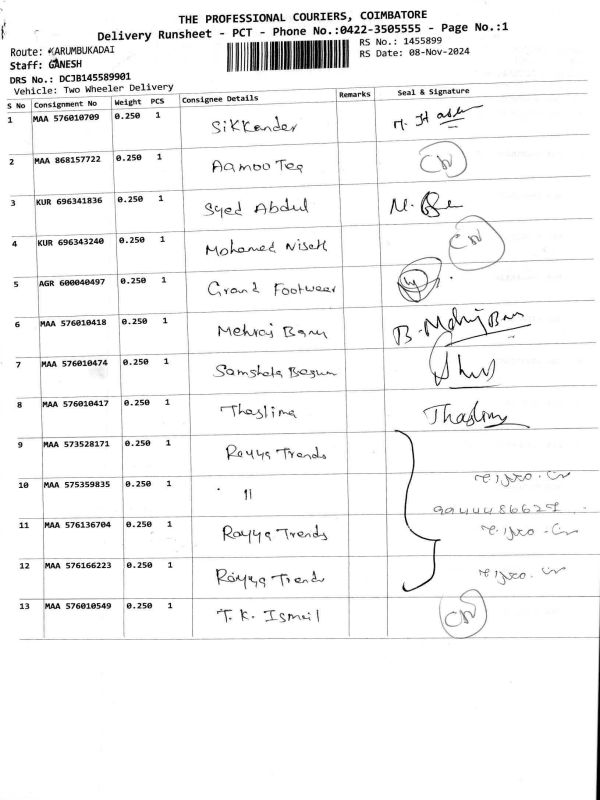 THE PROFESSIONAL COURIERS, COIMBATORE
Delivery Runsheet - PCT - Phone No.:0422-3505555 - Page No.:1
Route: KARUMBUKADAI
RS No.: 1455899
Staff: GANESH
RS Date: 08-Nov-2024
DRS No.: DCJB145589901
Vehicle: Two Wheeler Delivery
S No Consignment No Weight PCS Consignee Details Remarks Seal & Signature
1 MAA 576010709 0.250 1 Sikkander
2 MAA 868157722 0.250 1 Aamoo Tea
3 KUR 696341836 0.250 1 Syed Abdul
4 KUR 696343240 0.250 1 Mohamed
5 AGR 600040497 0.250 1 Grand Footwear
6 MAA 576010418 0.250 1 Mehraj Banu
7 MAA 576010474 0.250 1 Begum
8 MAA 576010417 0.250 1 Thaslima Thaslima
9 MAA 573528171 0.250 1 Rayya Trends
10 MAA 575359835 0.250 1 11
9944486627
11 MAA 576136704 0.250 1 Rayya Trends
12 MAA 576166223 0.250 1 Rayya Trends
13 MAA 576010549 0.250 1 T. K. Ismail